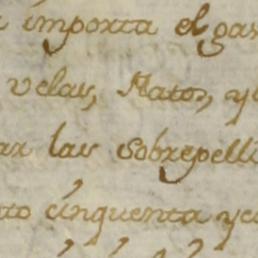 importa el gas
velas, Platos, y
ar las sobrepelli
to cinquenta y c